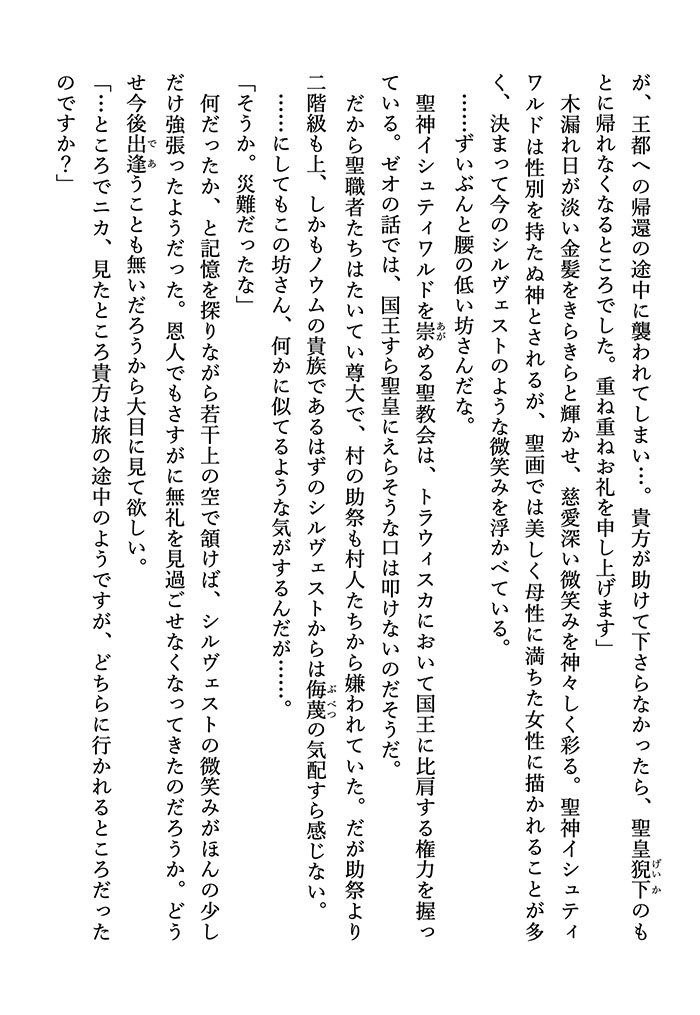 が、王都への帰還の途中に襲われてしまい…。貴方が助けて下さらなかったら、聖皇猊下のも
とに帰れなくなるところでした。重ね重ねお礼を申し上げます」
　木漏れ日が淡い金髪をきらきらと輝かせ、慈愛深い微笑みを神々しく彩る。聖神イシュティ
ワルドは性別を持たぬ神とされるが、聖画では美しく母性に満ちた女性に描かれることが多
く、決まって今のシルヴェストのような微笑みを浮かべている。
　……ずいぶんと腰の低い坊さんだな。
　聖神イシュティワルドを崇める聖教会は、トラウィスカにおいて国王に比肩する権力を握っ
ている。ゼオの話では、国王すら聖皇にえらそうな口は叩けないのだそうだ。
　だから聖職者たちはたいてい尊大で、村の助祭も村人たちから嫌われていた。だが助祭より
二階級も上、しかもノウムの貴族であるはずのシルヴェストからは侮蔑の気配すら感じない。
　……にしてもこの坊さん、何かに似てるような気がするんだが……。
「そうか。災難だったな」
　何だったか、と記憶を探りながら若干上の空で頷けば、シルヴェストの微笑みがほんの少し
だけ強張ったようだった。恩人でもさすがに無礼を見過ごせなくなってきたのだろうか。どう
せ今後出逢うことも無いだろうから大目に見て欲しい。
「…ところでニカ、見たところ貴方は旅の途中のようですが、どちらに行かれるところだった
のですか？」